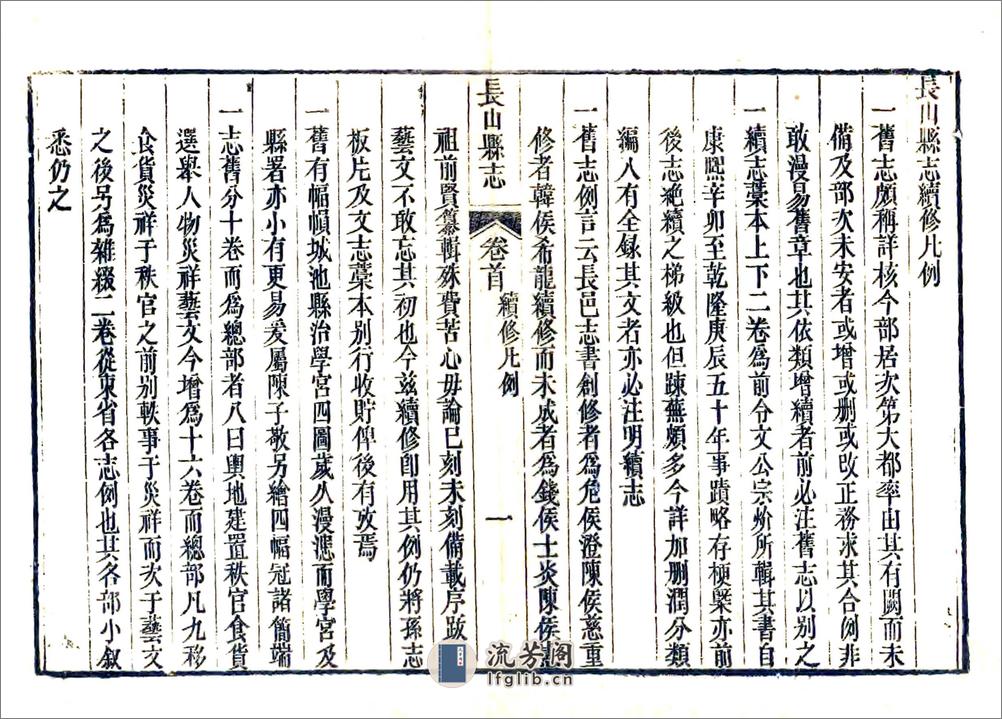 長山縣志續修凡例
一舊志頗稱詳核今部居次第大都率由其有闕而未
備及部次未安者或增或删或改正務求其合例非
敢漫易舊章也其依類增續者前必注舊志以别之
一續志藁本上下二卷為前令文公宗玠所輯其書自
康熙辛卯至乾隆庚辰五十年事蹟略存梗槩亦前
後志絶續之梯級也但踈蕪頗多今詳加删潤分類
編入有全録其文者亦必注明續志
一舊志例言云長邑志書創修者為危侯澄陳侯慈重
修者韓侯希龍續修而未成者為錢侯士炎陳侯
長山縣志
卷首
續修凡例
一
祖前賢纂輯殊費苦心毋論已刻未刻備載序跋
藝文不敢忘其初也今兹續修卽用其例仍將孫志
板片及文志藁本别行收貯俾後有攷焉
一舊有幅幀城池縣治學宫四圖歲久漫漶而學宫及
縣署亦小有更易爰屬陳子敬另繪四幅冠諸簡端
一志舊分十卷而為總部者八曰輿地建置秩官食貨
選舉人物災祥藝文今增為十六卷而總部凡九移
食貨災祥于秩官之前别軼事于災祥而次于藝文
之後另為雜綴二卷從東省各志例也其各部小叙
悉仍之
流芳阁
lfglib.cn